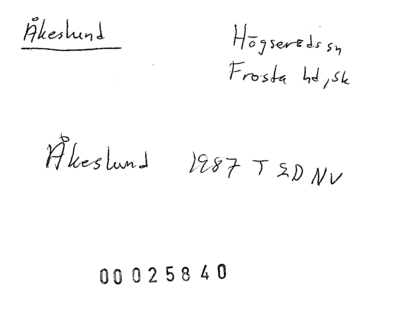 Åkeslund
Högsereds sn
Frosta hd, sk
Åkeslund 1987 T 2D NV
00025840